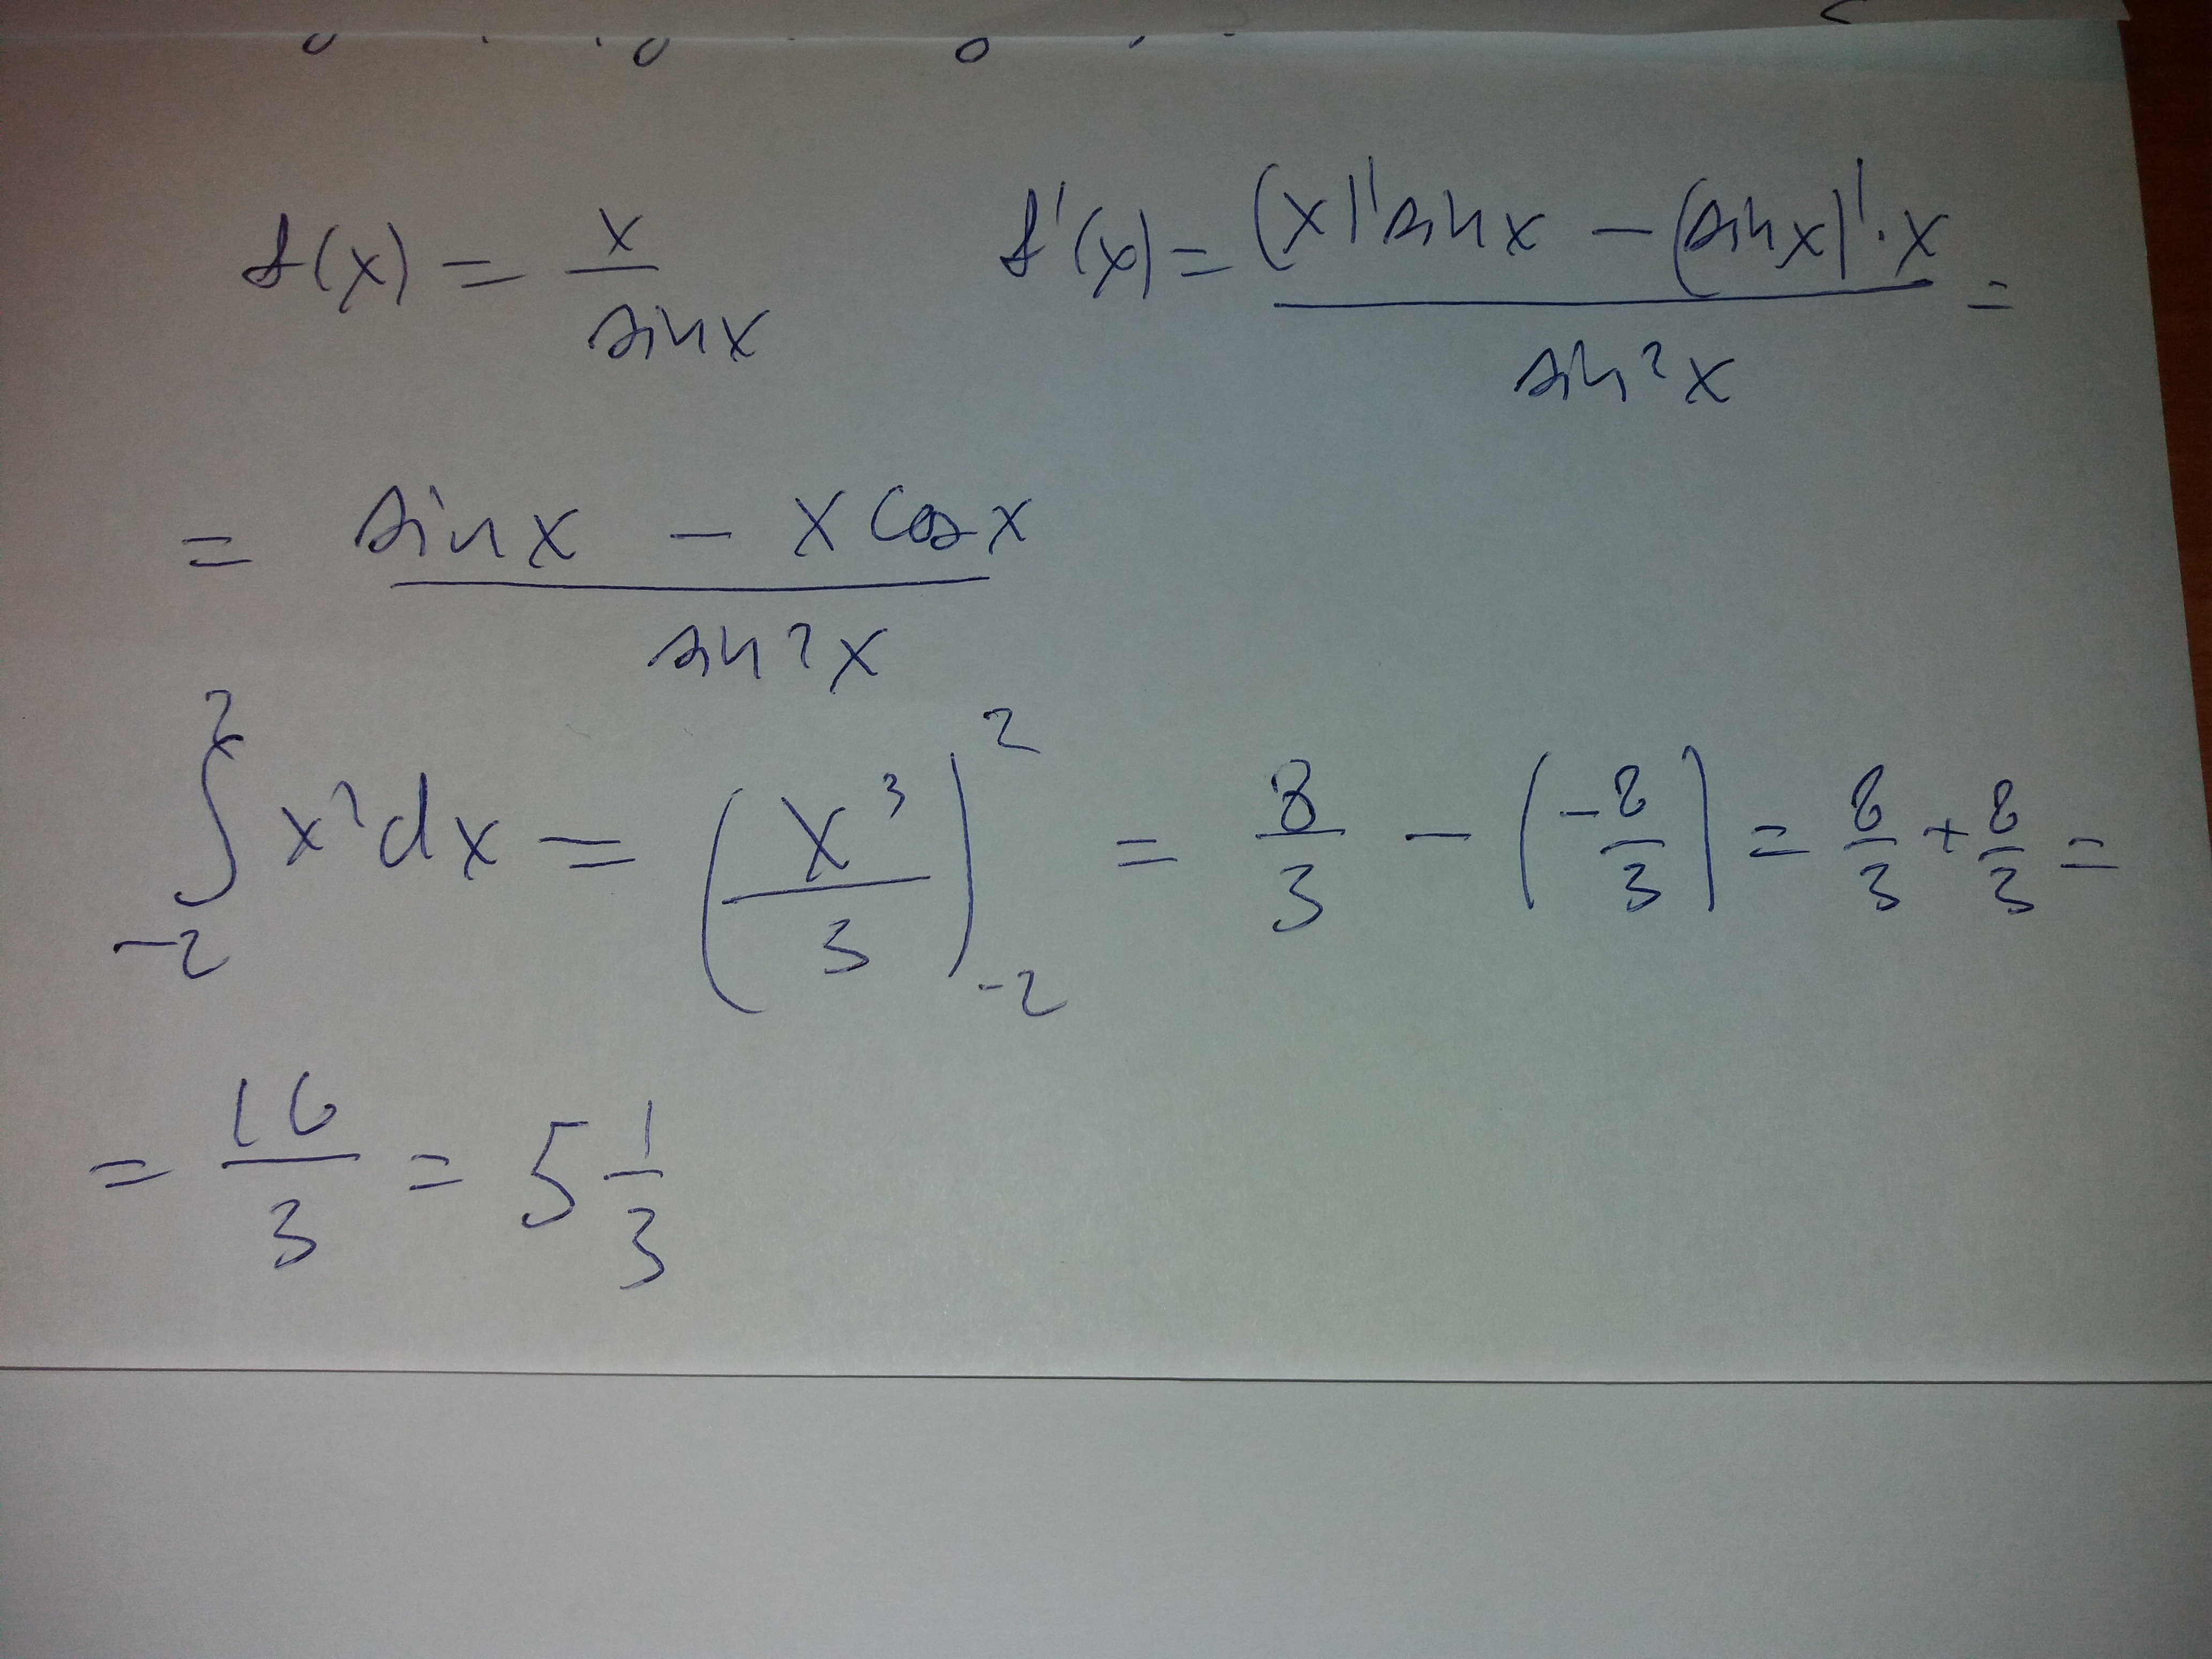 f(x) = x/sinx    f'(x) = ((x)'sinx − (sinx)'·x)/sin²x =
= (sinx − x cosx)/sin²x
∫₋₂² x²dx = (x³/3)|₋₂² = 8/3 − (−8/3) = 8/3 + 8/3 =
= 16/3 = 5 1/3